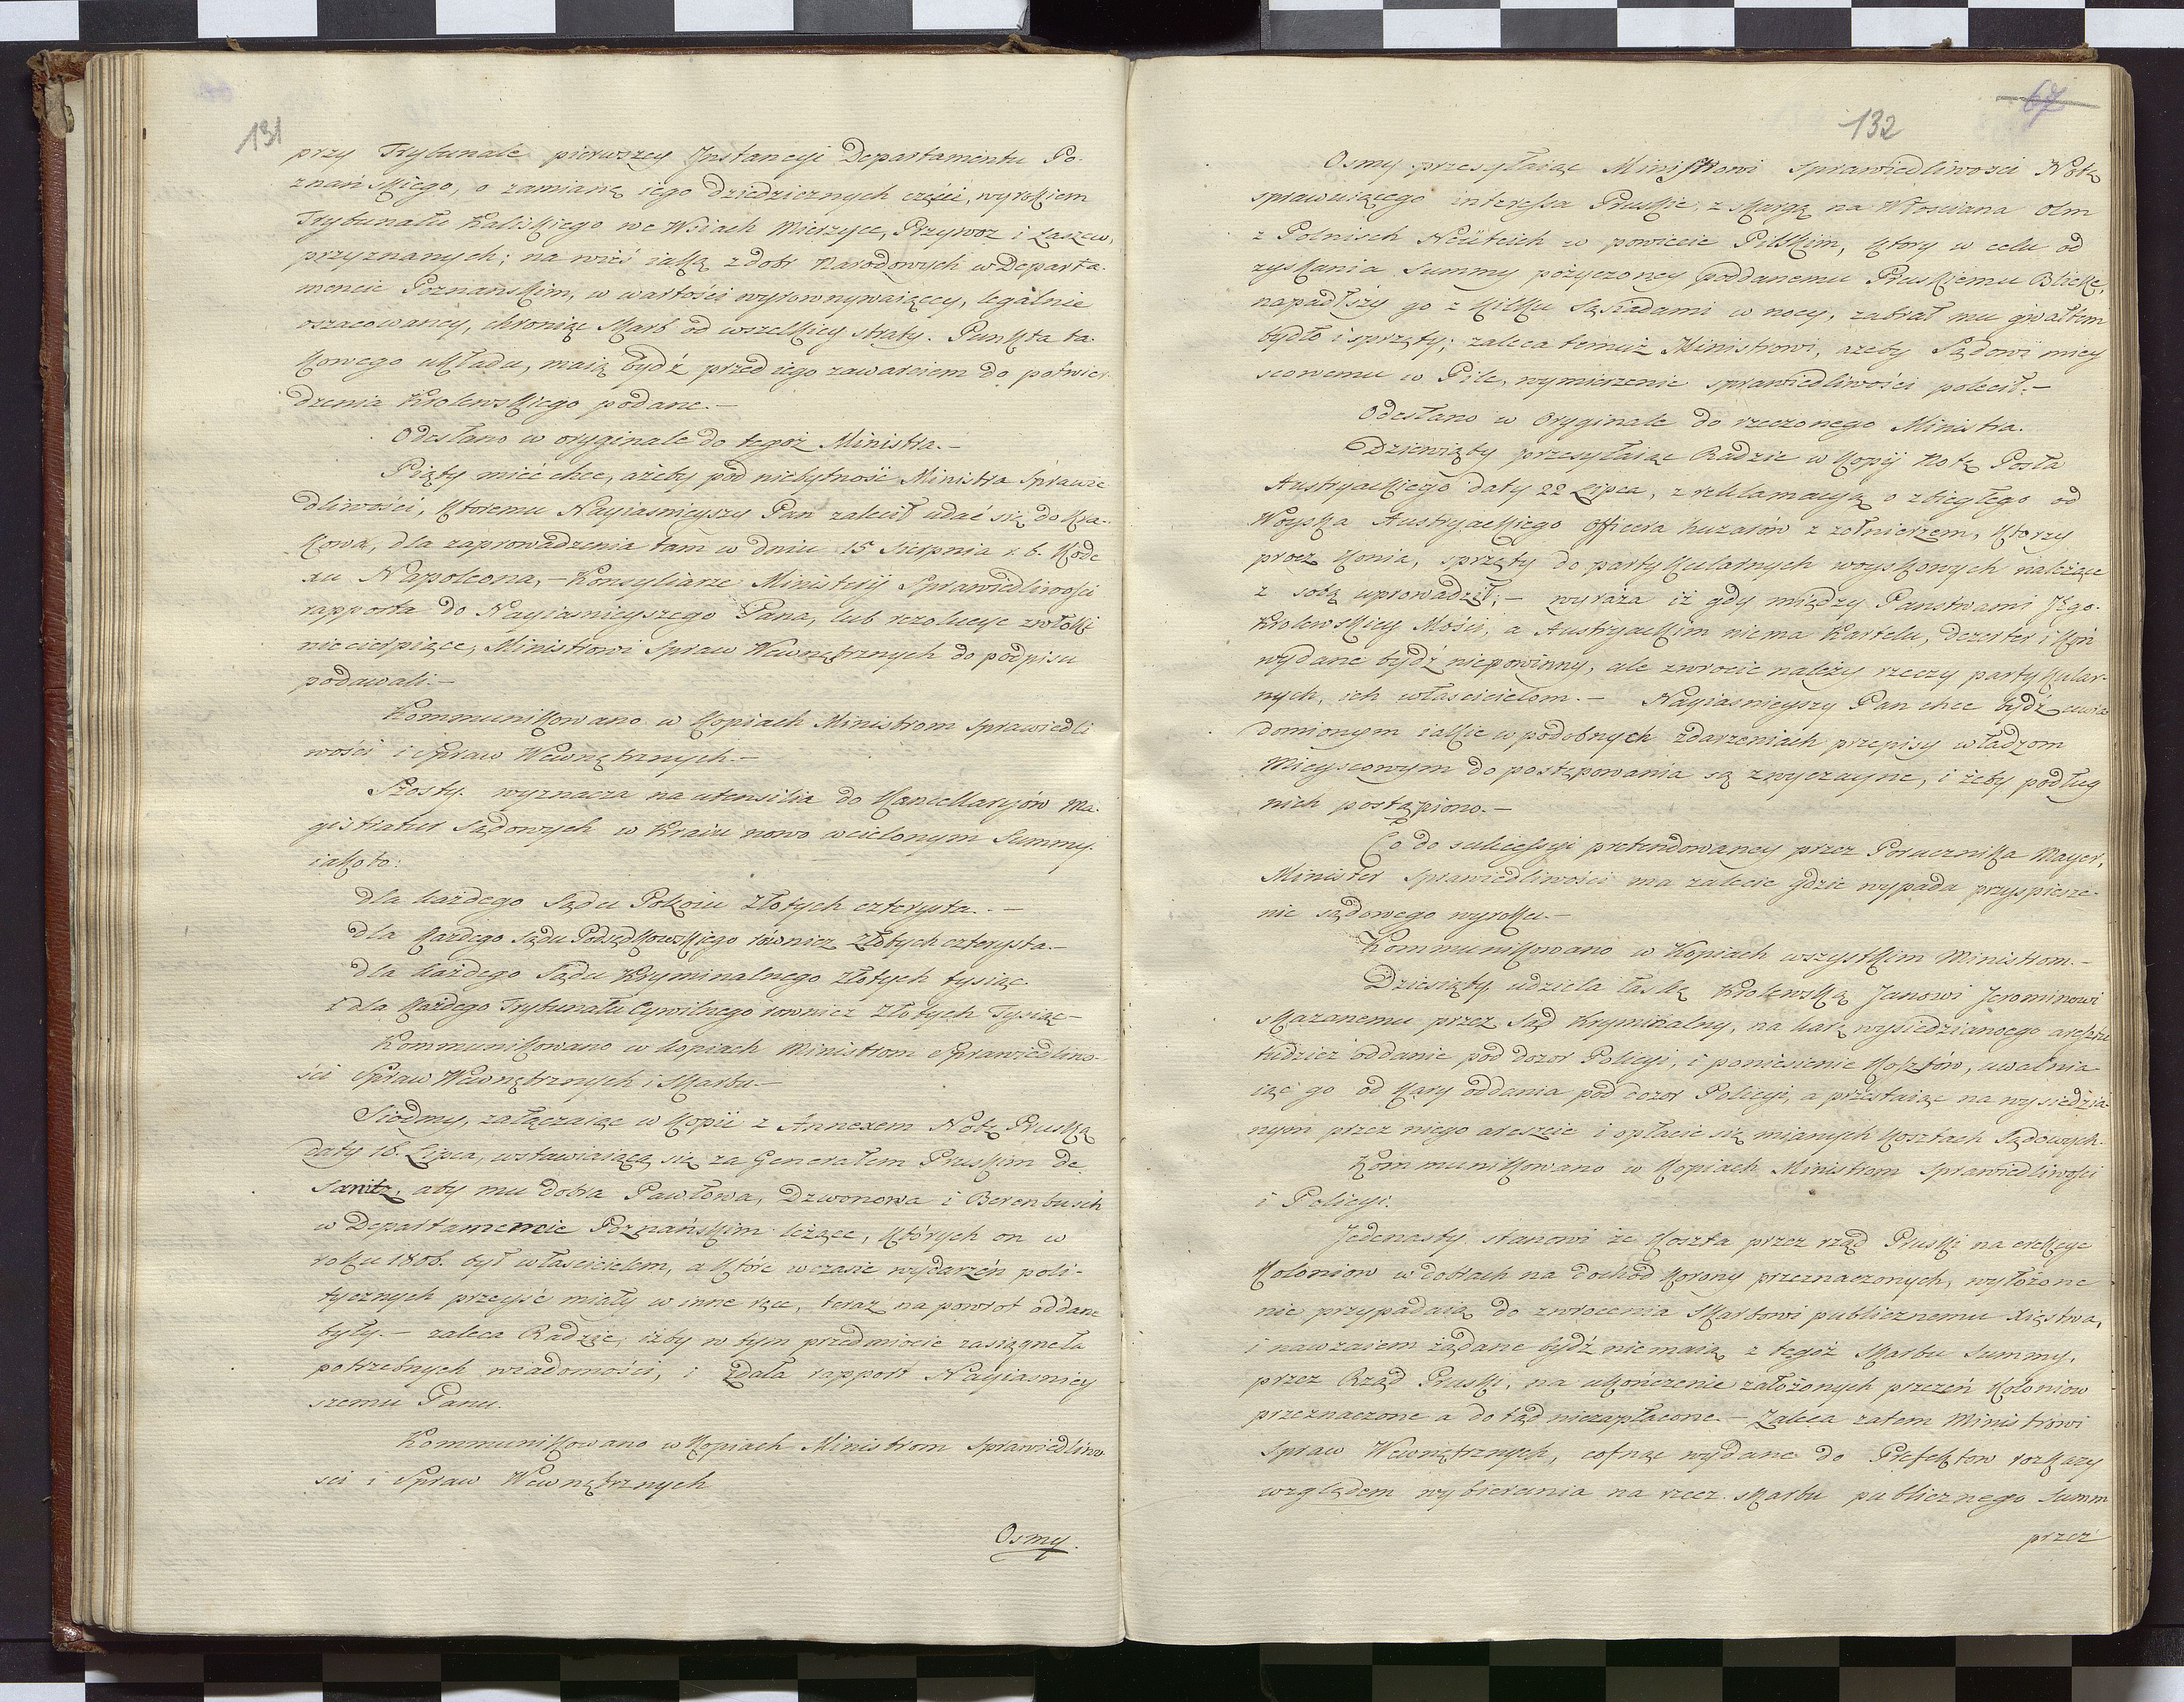 131
przy Trybunale pierwszey Instancyi Departamentu Po-
znańskiego, o zamianę iego dziedzicznych części, wyrokiem
Trybunału Kaliskiego we Wsiach Mierzyce, Przywoz i Łaszew,
przyznanych; na wieś iaką z dobr Narodowych w Departa-
mencie Poznanskim, w wartości wyrownywaiącey, legalnie
oszacowaney, chroniąc skarb od wszelkiey straty. Punkta ta-
kowego układu, maią bydź przed iego zawarciem do potwier-
dzenia Krolewskiego podane.-
Odesłano w oryginale do tegoż Ministra.-
Piąty mieć chce, ażeby pod niebytność Ministra Sprawie
dliwości, ktoremu Nayiasnieyszy Pan zalecił udać się do Kra-
kowa, dla zaprowadzenia tam w dniu 15 Sierpnia r. b. Kode
xu Napoleona,- Konsyliarze Ministrij Sprawiedliwości
rapporta do Nayiasnieyszego Pana, lub rezolucye zwłoki
niecierpiące, Ministrowi Spraw Wewnętrznych do podpisu
podawali.-
Kommunikowano w kopiach Ministrom Sprawiedli
wości i Spraw Wewnętrznych.-
Szosty. wyznacza na utensilia do Kancellaryów Ma-
gistratur Sądowych w Kraiu nowo wcielonym Summy.
iakoto:
dla każdego Sądu Pokoiu Złotych czterysta.-
dla każdego sądu Podsędkowskiego równiez Złotych czterysta.-
dla każdego Sądu Kryminalnego Złotych tysiąc
i dla każdego Trybunału Cywilnego rowniez Złotych Tysiąc-
Kommunikowano w kopiach Ministrom Sprawiedliwo-
ści Spraw Wewnętrznych i Skarbu.-
Siodmy, załączaiąc w kopii z Annexem Notę Pruską
daty 16. Lipca, wstawiaiącą się za Generałem Pruskim de
Sanitz, aby mu dobra Pawłowa, Dzwonowa i Berenbusch
w Departamencie Poznańskim leżące, których on w
roku 1806. był właścicielem, a które w czasie wydarzeń poli-
tycznych przeyść miały w inne ręce, teraz na powrot oddane
były.- zaleca Radzie, iżby w tym przedmiocie zasiągneła
potrzebnych wiadomości, i zdała rapport Nayiasniey
szemu Panu.
Kommunikowano w kopiach Ministrom Sprawiedliwo-
sci i Spraw Wewnętrznych
Osmy.
67
132
Osmy przesyłaiąc Ministrowi Sprawiedliwosci Notę
sprawuiącego interessa Pruskie, z skargą na Włosciana Olm
z Polnisch Neüteich w powiecie Pilskim, ktory w celu od
zyskania Summy pożyczoney poddanemu Pruskiemu Blicke,
napadłszy go z kilku sąsiadami w nocy, zabrał mu gwałtem
bydło i sprzęty; zaleca temuż Ministrowi, ażeby Sądowi miey
scowemu w Pile, wymierzenie sprawiedliwości polecił.-
Odesłano w Oryginale do rzeczonego Ministra.
Dziewiąty przesyłaiąc Radzie w kopij Notę Posła
Austryackiego daty 22 Lipca, z reklamacyą o zbiegłego od
Woyska Austryackiego Officera huzarów z żołnierzem, ktorzy
procz konia, sprzęty do partykularnych woyskowych należące
z sobą uprowadził;- wyraża iż gdy między Panstwami Jego-
Krolewskiey Mości, a Austryackim nie ma Kartelu, dezerter i koń
wydane bydź niepowinny, ale zwrocic należy rzeczy partykular-
nych, ich właścicielom.- Nayiasnieyszy Pan chce bydź uwia
domionym iakie w podobnych zdarzeniach przepisy władzom
Mieyscowym do postępowania są zwyczayne, i żeby podług
nich postąpiono.-
Co do sukcessyi pretendowaney przez Porucznika Mayer,
Minister Sprawiedliwości ma zalecic gdzie wypada przyspiesze-
nie sądowego wyroku.-
Kommunikowano w kopiach wszystkim Ministrom.-
Dziesiąty, udziela łaskę Krolewską Janowi Jerominowi
skazanemu przez Sąd Kryminalny, na karę wysiedzianego aresztu
tudzież oddanie pod dozor Policyi, i poniesienie kosztów, uwalnia
iąc go od kary oddania pod dozor Policyi, a przestaiąc na wysiedzia-
nym przez niego areszcie i opłacie się mianych kosztach Sądowych.
Kommunikowano w kopiach Ministrom Sprawiedliwości
i Policyi.
Jedenasty stanowi że koszta przez rząd Pruski na erekcye
Koloniow w dobrach na dochod Korony przeznaczonych, wyłożone
nie przypadaią do zwrocenia Skarbowi publicznemu Xięstwa,
i nawzaiem żądane bydź niemaią z tegoż Skarbu Summy,
przez Rząd Pruski, na ukończenie założonych przezeń Koloniow
przeznaczone a dotąd niezapłacone.- Zaleca zatem Ministrowi
Spraw Wewnętrznych, cofnąc wydane do Prefektow rozkazy
względem wybierania na rzecz Skarbu publicznego Summ
przez